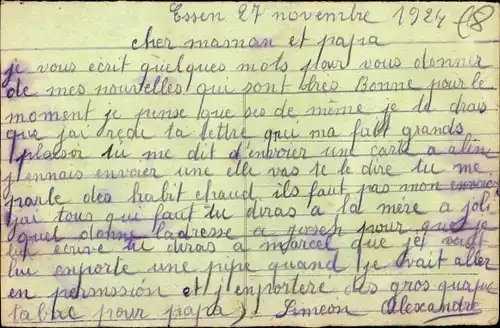 Essen 27 novembre 1924 (8
cher maman et papa
je vous ecrit quelques mots pour vous donner
de mes nouvelles qui sont très Bonne pour le
moment je pense que de même je te dirais
que j'ai reçdu ta lettre qui ma fait grands
plaisir tu me dit d'envoier une carte a aline
j'ennais envoier une elle vas te le dire tu me
parle des habit chaud ils faut pas mon
j'ai tous qui faut tu diras a la mère a joli
quel donne l'adresse a pour que je
lui ecrive tu diras a marcel que je vait
lui emporte une pipe quand je vait aller
en permission et j'emportere des gros
tabac pour papa Simeon Alexandre